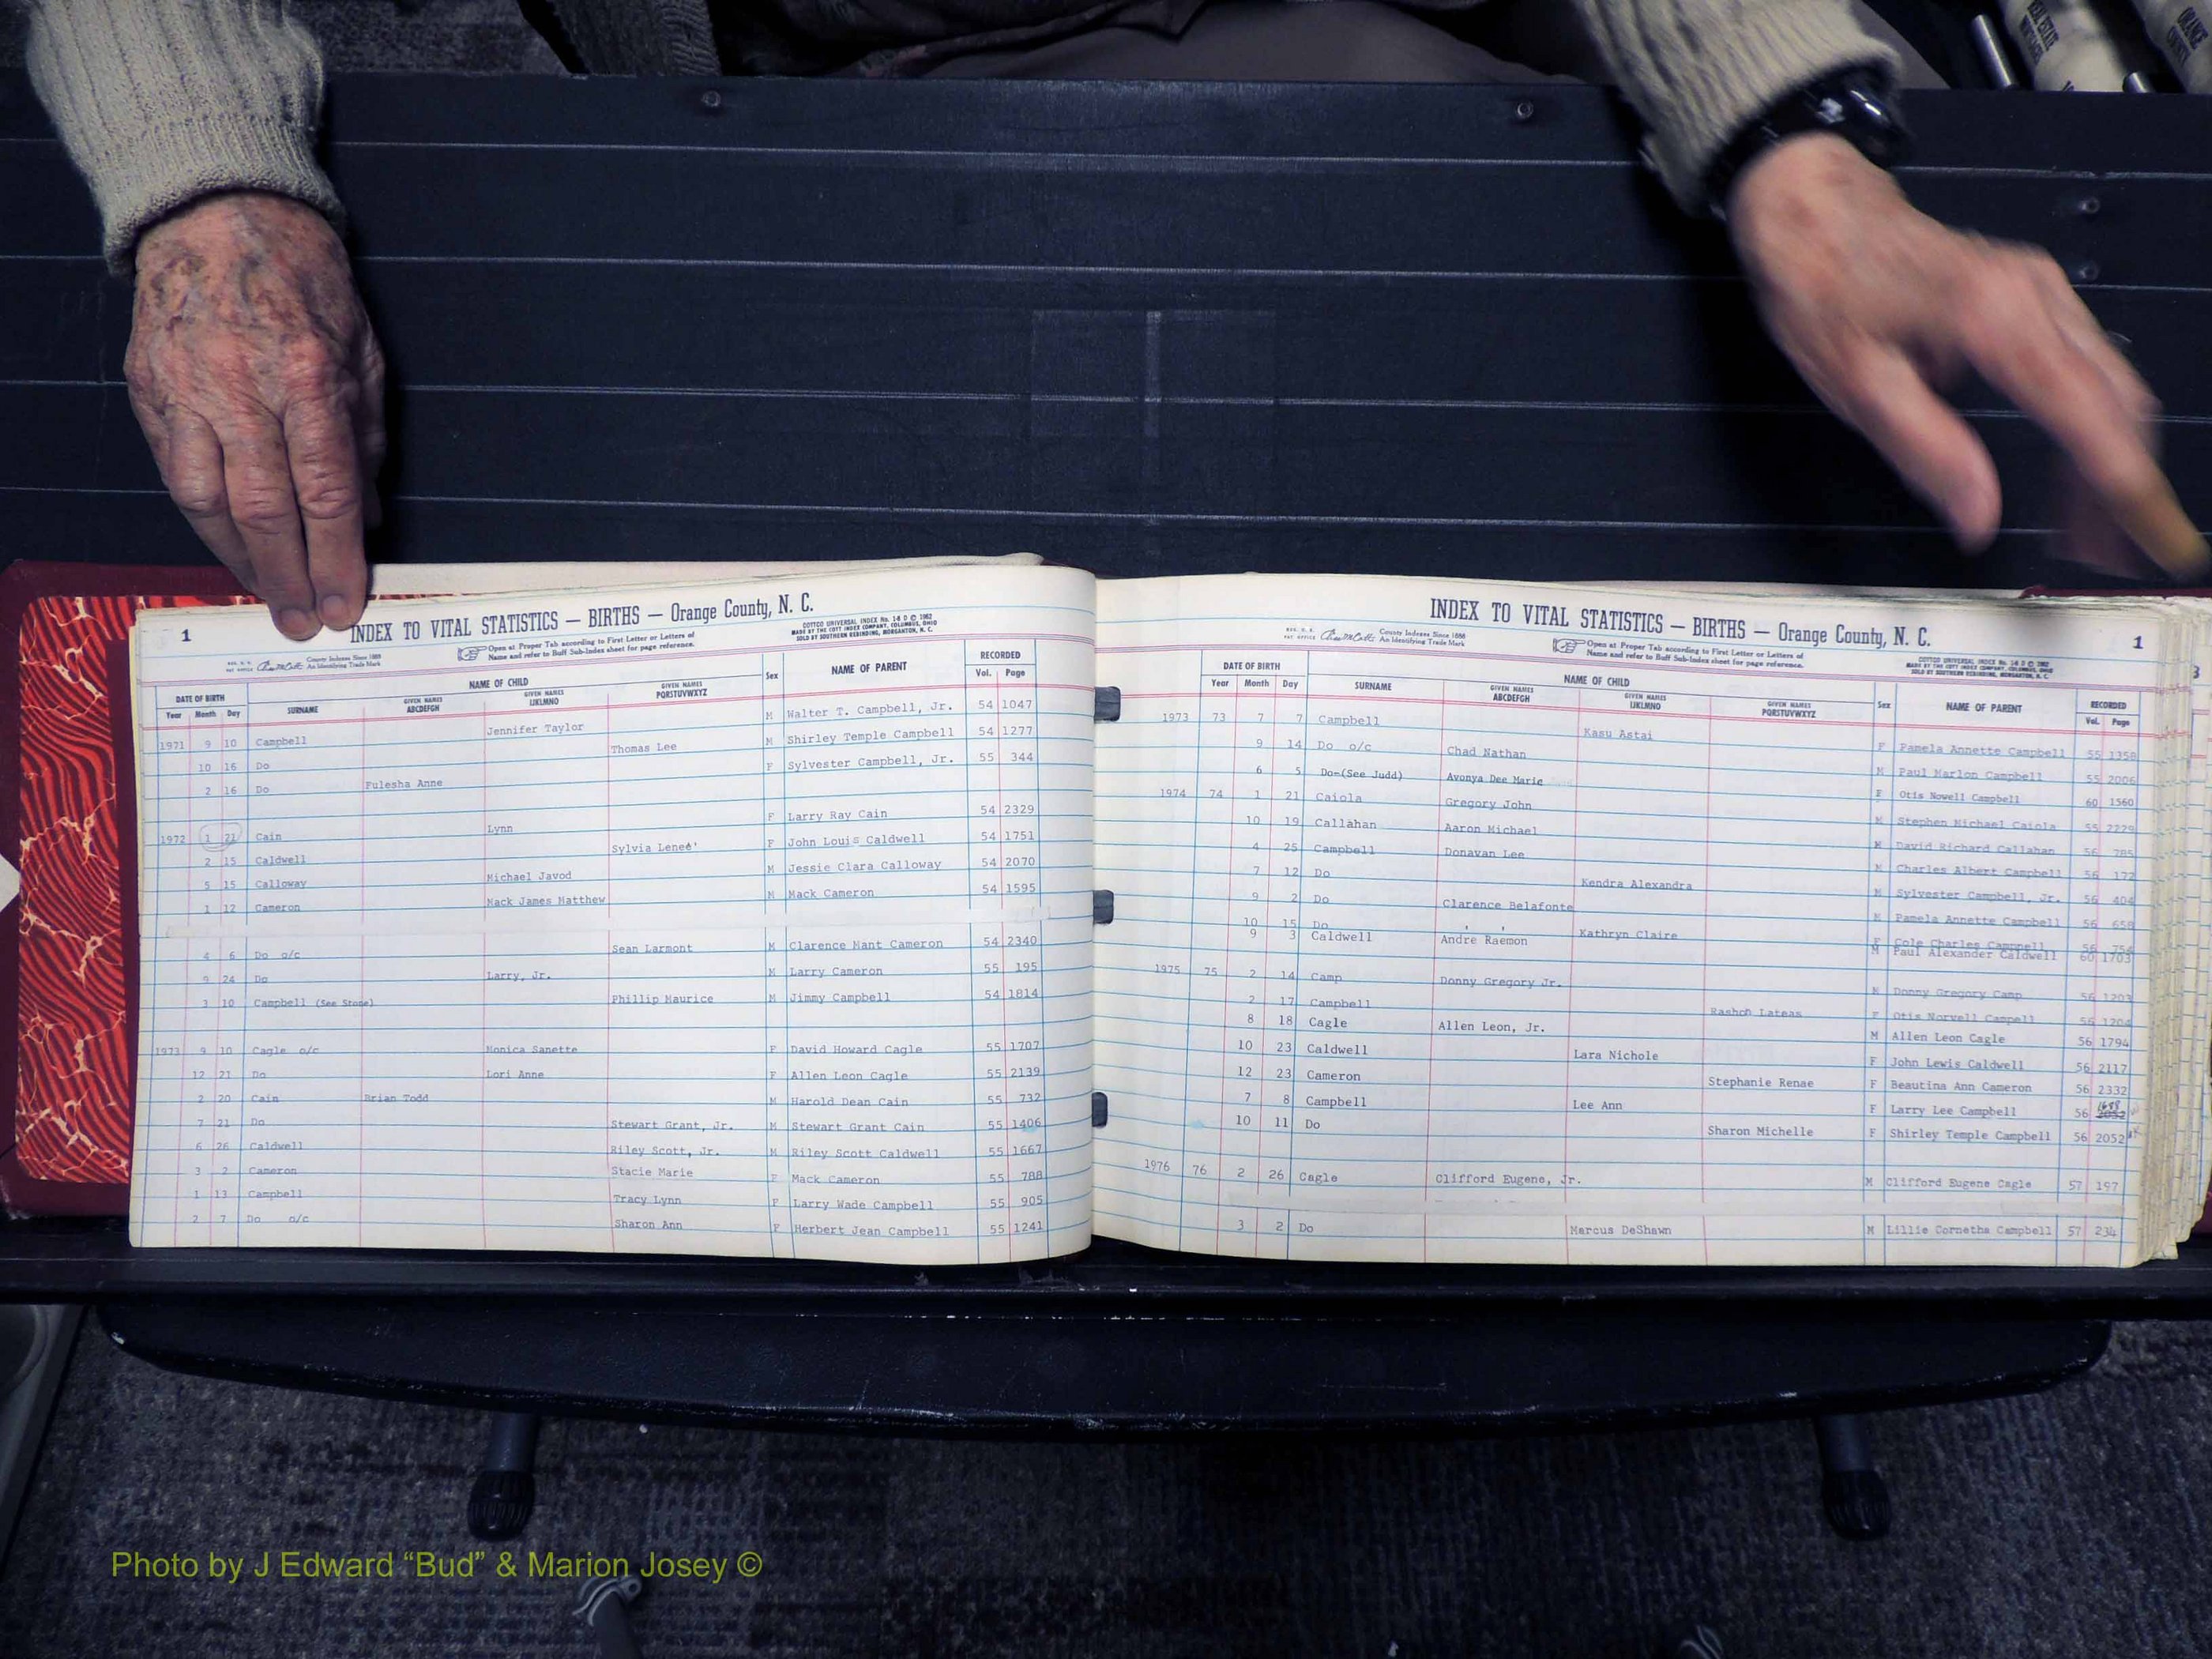 REAL ESTATE
ORANGE COUNTY
1
INDEX TO VITAL STATISTICS — BIRTHS — Orange County, N. C.
COTTCO UNIVERSAL INDEX No. 14 D © 1962
MADE BY THE COTT INDEX COMPANY, COLUMBUS, OHIO
SOLD BY SOUTHERN REBINDING, MORGANTON, N. C.
County Indexes Since 1888
An Identifying Trade Mark
Open at Proper Tab according to First Letter or Letters of
Name and refer to Buff Sub-Index sheet for page reference.
DATE OF BIRTH NAME OF CHILD Sex NAME OF PARENT RECORDED
Year Month Day SURNAME GIVEN NAMES ABCDEFGH GIVEN NAMES IJKLMNO GIVEN NAMES PQRSTUVWXYZ Vol. Page
1971 9 10 Campbell Jennifer Taylor M Walter T. Campbell, Jr. 54 1047
10 16 Do Thomas Lee M Shirley Temple Campbell 54 1277
2 16 Do Fulesha Anne F Sylvester Campbell, Jr. 55 344
1972 1 21 Cain Lynn F Larry Ray Cain 54 2329
2 15 Caldwell Sylvia Leneé' F John Louis Caldwell 54 1751
5 15 Calloway Michael Javod M Jessie Clara Calloway 54 2070
1 12 Cameron Mack James Matthew M Mack Cameron 54 1595
4 6 Do o/c Sean Larmont M Clarence Mant Cameron 54 2340
9 24 Do Larry, Jr. M Larry Cameron 55 195
3 10 Campbell (See Stone) Phillip Maurice M Jimmy Campbell 54 1814
1973 9 10 Cagle o/c Monica Sanette F David Howard Cagle 55 1707
12 21 Do Lori Anne F Allen Leon Cagle 55 2139
2 20 Cain Brian Todd M Harold Dean Cain 55 732
7 21 Do Stewart Grant, Jr. M Stewart Grant Cain 55 1406
6 26 Caldwell Riley Scott, Jr. M Riley Scott Caldwell 55 1667
3 2 Cameron Stacie Marie F Mack Cameron 55 788
1 13 Campbell Tracy Lynn F Larry Wade Campbell 55 905
2 7 Do o/c Sharon Ann F Herbert Jean Campbell 55 1241
INDEX TO VITAL STATISTICS — BIRTHS — Orange County, N. C.
1
County Indexes Since 1888
An Identifying Trade Mark
Open at Proper Tab according to First Letter or Letters of
Name and refer to Buff Sub-Index sheet for page reference.
COTTCO UNIVERSAL INDEX No. 14 D © 1962
MADE BY THE COTT INDEX COMPANY, COLUMBUS, OHIO
SOLD BY SOUTHERN REBINDING, MORGANTON, N. C.
DATE OF BIRTH NAME OF CHILD Sex NAME OF PARENT RECORDED
Year Month Day SURNAME GIVEN NAMES ABCDEFGH GIVEN NAMES IJKLMNO GIVEN NAMES PQRSTUVWXYZ Vol. Page
1973 73 7 7 Campbell Kasu Astai F Pamela Annette Campbell 55 1358
9 14 Do o/c Chad Nathan M Paul Marlon Campbell 55 2006
6 5 Do-(See Judd) Avonya Dee Marie F Otis Nowell Campbell 60 1560
1974 74 1 21 Caiola Gregory John M Stephen Michael Caiola 55 2229
10 19 Callahan Aaron Michael M David Richard Callahan 56 785
4 25 Campbell Donavan Lee M Charles Albert Campbell 56 172
7 12 Do Kendra Alexandra M Sylvester Campbell, Jr. 56 404
9 2 Do Clarence Belafonte M Pamela Annette Campbell 56 658
10 15 Do Kathryn Claire F Cole Charles Campbell 56 754
9 3 Caldwell Andre Raemon M Paul Alexander Caldwell 60 1703
1975 75 2 14 Camp Donny Gregory Jr. M Donny Gregory Camp 56 1203
2 17 Campbell Rashon Lateas F Otis Norvell Campell 56 1204
8 18 Cagle Allen Leon, Jr. M Allen Leon Cagle 56 1794
10 23 Caldwell Lara Nichole F John Lewis Caldwell 56 2117
12 23 Cameron Stephanie Renae F Beautina Ann Cameron 56 2332
7 8 Campbell Lee Ann F Larry Lee Campbell 56 1688
10 11 Do Sharon Michelle F Shirley Temple Campbell 56 2052
1976 76 2 26 Cagle Clifford Eugene, Jr. M Clifford Eugene Cagle 57 197
3 2 Do Marcus DeShawn M Lillie Cornetha Campbell 57 234
3
Photo by J Edward “Bud” & Marion Josey ©